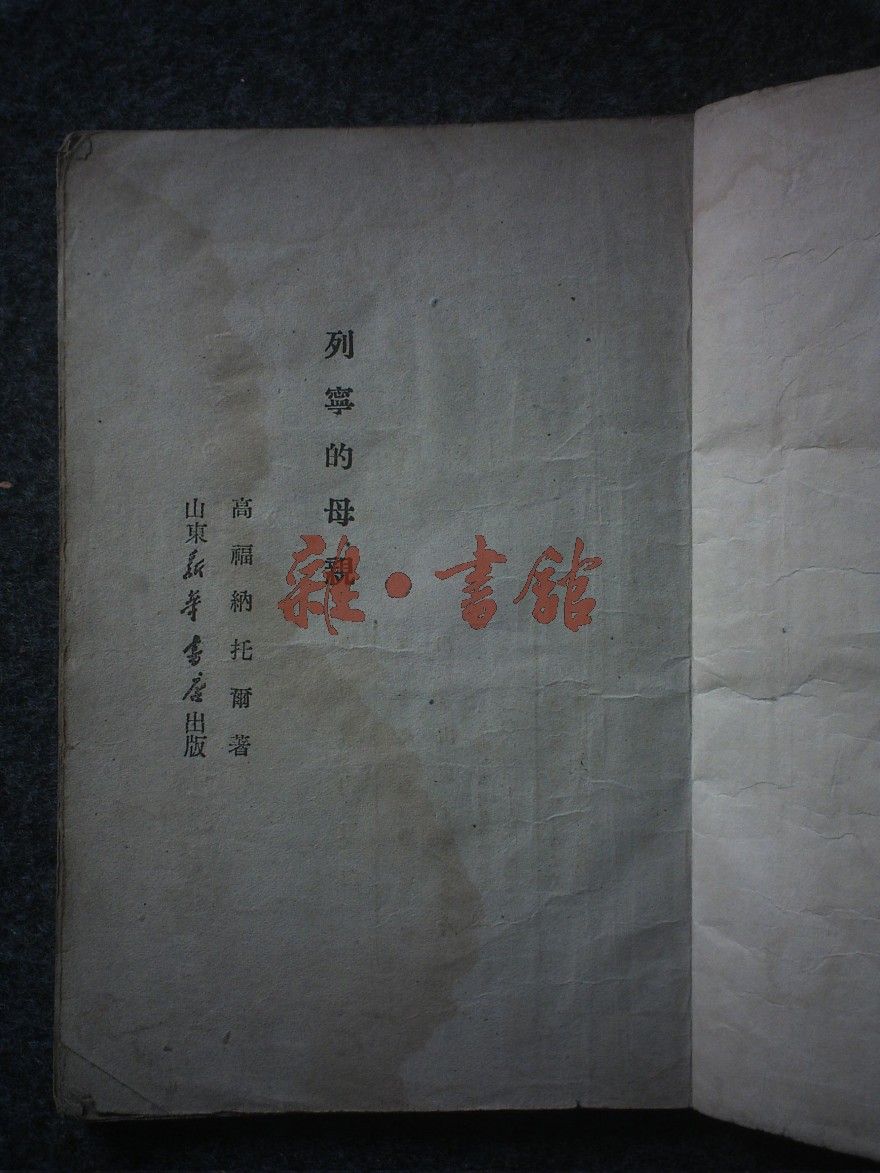 列寧的母親
高福納托爾著
山東新華書店出版
雜·書館